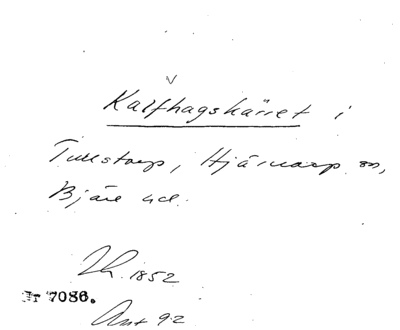 Kalfhagskärret i
Tullstorp, Hjärnarp sn,
Bjäre hd.
Lh. 1852
Nr 7086.
Ant 92